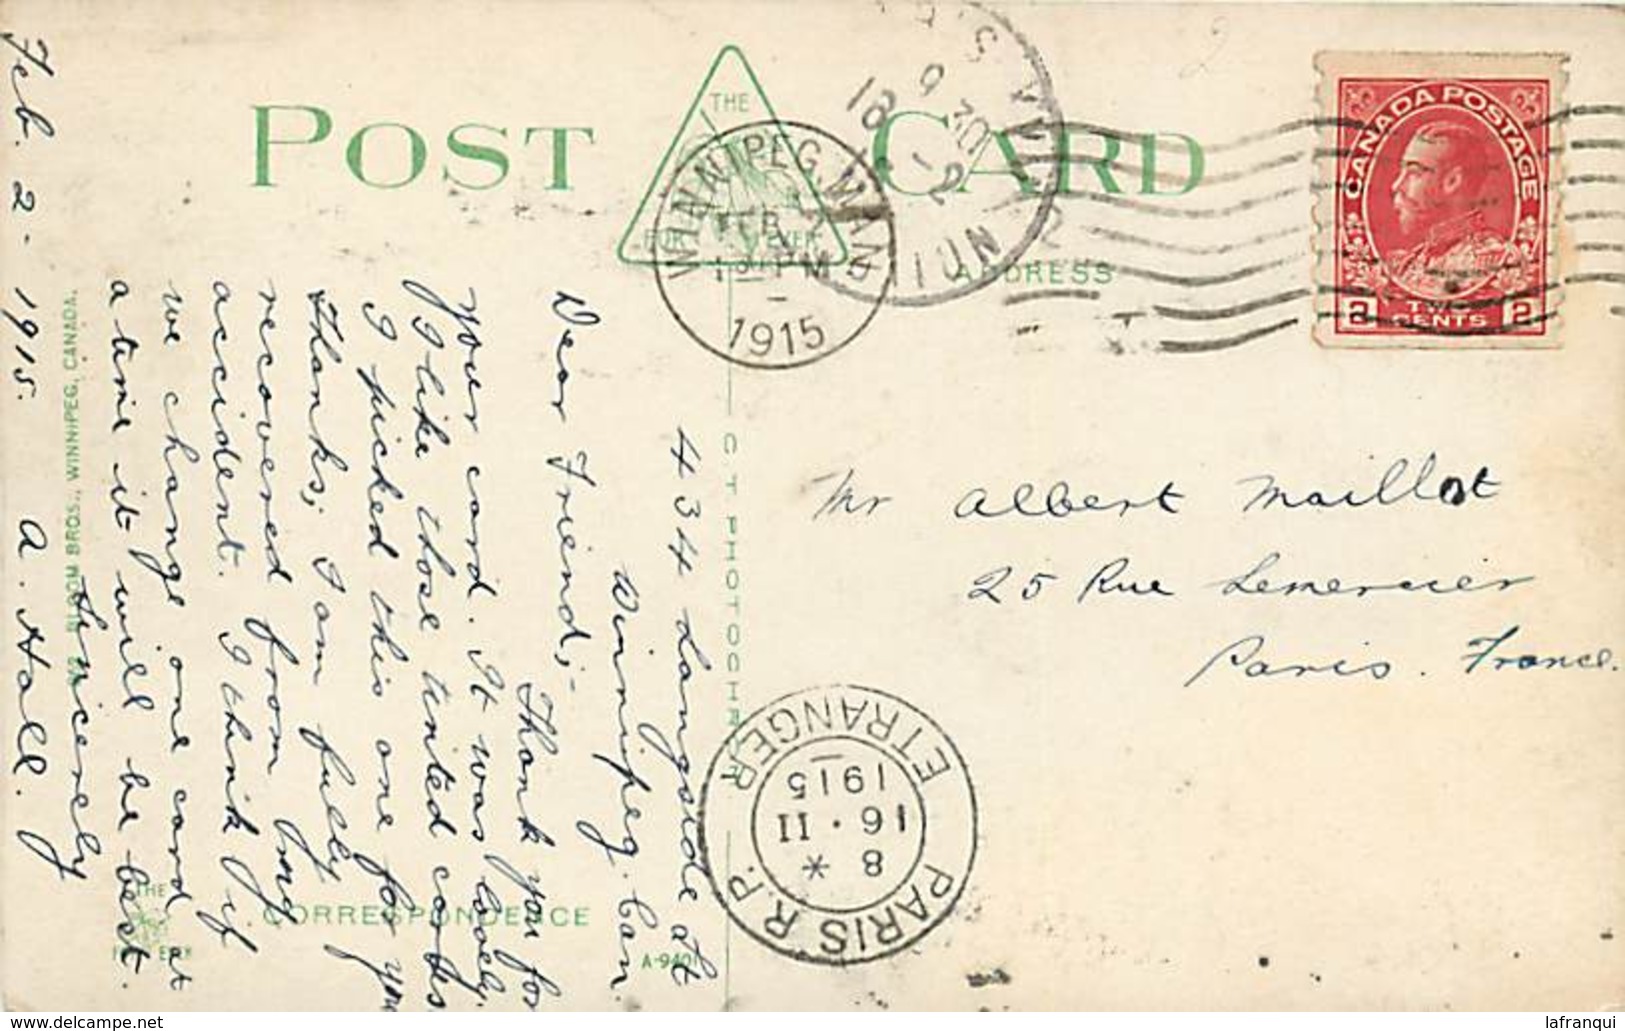 POST CARD
THE
FOR EVER
WINNIPEG. MAN.
FEB 2
1915
18 -2
CANADA POSTAGE
2 TWO CENTS 2
ADDRESS
Mr Albert Maillot
25 Rue Lemercier
Paris. France.
PARIS R.P.
ETRANGER
8 *
16 · II
1915
C.T. PHOTOCHROM
434 Langside St
Winnipeg. Can.
Dear Friend;-
Thank you for
your card. It was lovely.
I like those tinted cards
I picked this one for you
Thanks; I am fully
recovered from my
accident. I think if
we change one card at
a time it will be best.
Sincerely
A. Hall.
Feb. 2. 1915.
BLOOM BROS., WINNIPEG, CANADA.
CORRESPONDENCE
A-9401
THE
EVER
delcampe.net
lafranqui